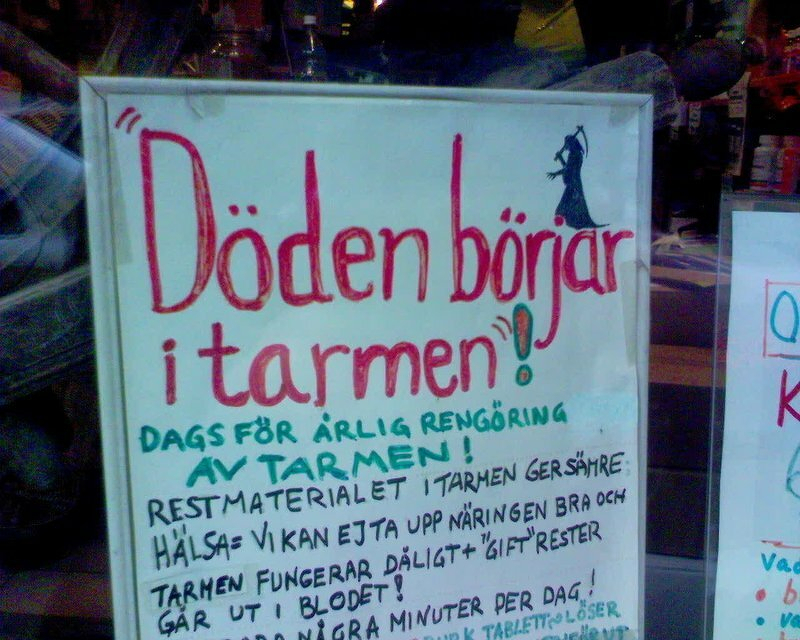 "Döden börjar
i tarmen"!
DAGS FÖR ÅRLIG RENGÖRING
AV TARMEN!
RESTMATERIALET I TARMEN GER SÄMRE
HÄLSA= VI KAN EJ TA UPP NÄRINGEN BRA OCH
TARMEN FUNGERAR DÅLIGT + "GIFT"RESTER
GÅR UT I BLODET!
NÅGRA MINUTER PER DAG!
TABLETT LÖSER
Vad